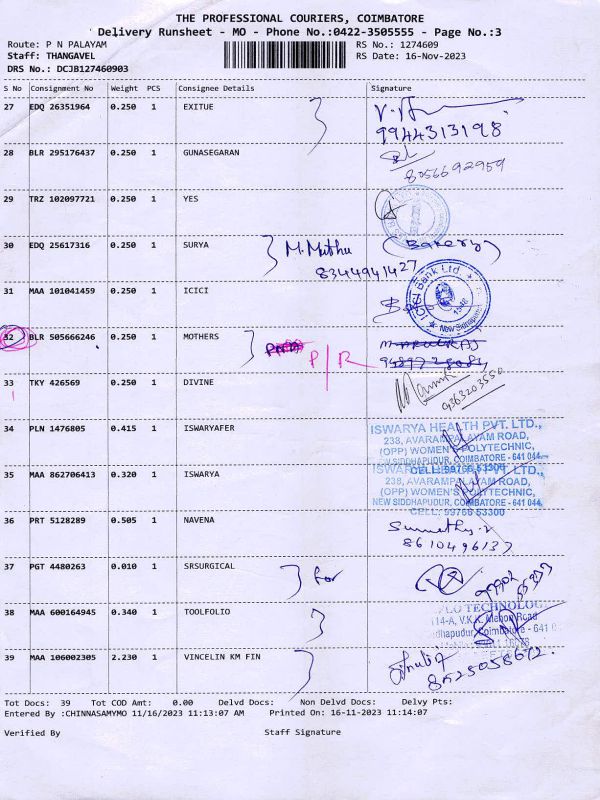 THE PROFESSIONAL COURIERS, COIMBATORE
Delivery Runsheet - MO - Phone No.:0422-3505555 - Page No.:3
Route: P N PALAYAM RS No.: 1274609
Staff: THANGAVEL RS Date: 16-Nov-2023
DRS No.: DCJB127460903
S No Consignment No Weight PCS Consignee Details Signature
27 EDQ 26351964 0.250 1 EXITUE
9944313198
28 BLR 295176437 0.250 1 GUNASEGARAN
8056692959
29 TRZ 102097721 0.250 1 YES
30 EDQ 25617316 0.250 1 SURYA M. Muthu (Bakery)
8344941427
31 MAA 101041459 0.250 1 ICICI
ICICI Bank Ltd.
32 BLR 505666246 0.250 1 MOTHERS P/R
33 TKY 426569 0.250 1 DIVINE
9363203550
34 PLN 1476805 0.415 1 ISWARYAFER
ISWARYA HEALTH PVT. LTD.,
238, AVARAMPALAYAM ROAD,
(OPP) WOMEN'S POLYTECHNIC,
NEW SIDDHAPUDUR, COIMBATORE - 641 044.
CELL: 99766 53300
35 MAA 862706413 0.320 1 ISWARYA
ISWARYA HEALTH PVT. LTD.,
238, AVARAMPALAYAM ROAD,
(OPP) WOMEN'S POLYTECHNIC,
NEW SIDDHAPUDUR, COIMBATORE - 641 044.
CELL: 99766 53300
36 PRT 5128289 0.505 1 NAVENA
8610496137
37 PGT 4480263 0.010 1 SRSURGICAL for
38 MAA 600164945 0.340 1 TOOLFOLIO
TECHNOLOG
114-A, V.K.K. Menon Road
dhapudur, Coimbatore - 641 0
39 MAA 106002305 2.230 1 VINCELIN KM FIN
8525058672.
Tot Docs: 39 Tot COD Amt: 0.00 Delvd Docs: Non Delvd Docs: Delvy Pts:
Entered By :CHINNASAMYMO 11/16/2023 11:13:07 AM Printed On: 16-11-2023 11:14:07
Verified By Staff Signature